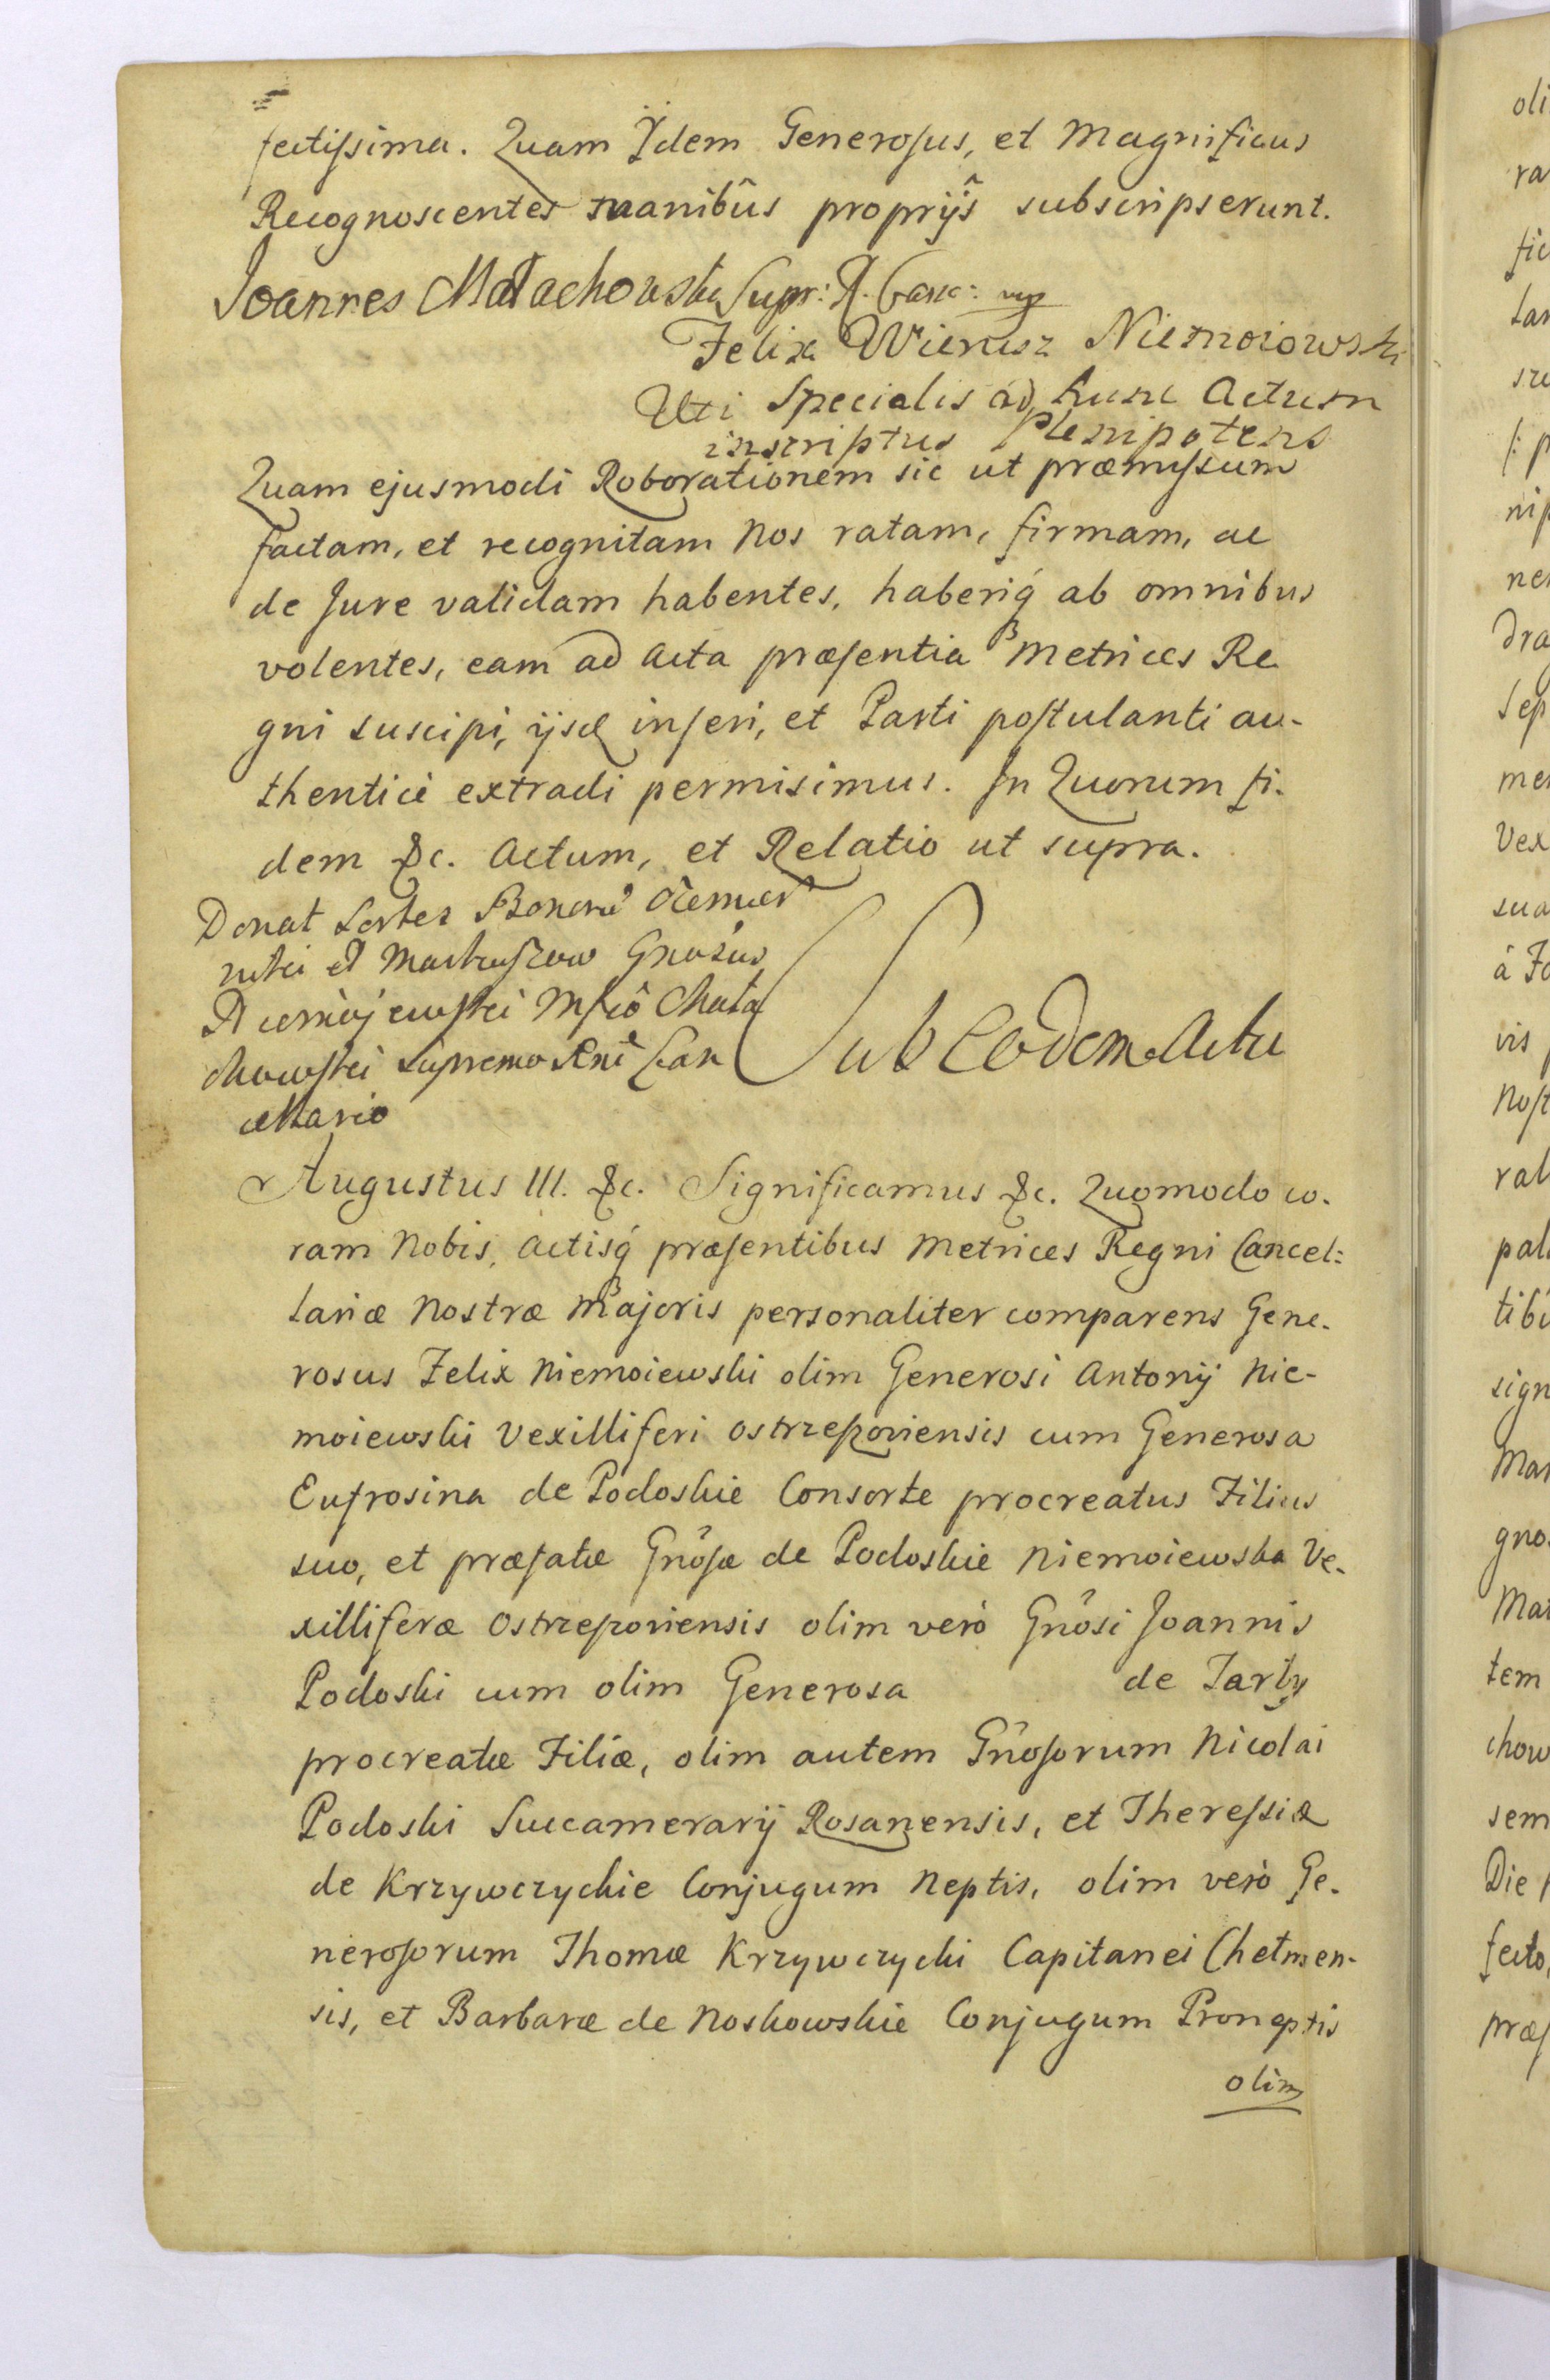 fectissima. Quam Ijdem Generosus, et Magnificus
Recognoscentes manibûs proprijs̑ subscripserunt.
Joannes Małachowski Supr: R. Canc: mp
Felix Wierusz Niemoiowski
Uti Specialis ad hunc Actum
inscriptus Plenipotens
Quam ejusmodi Roborationem sic ut præmissum
factam, et recognitam Nos ratam, firmam, ac
de Jure validam habentes, haberiq́ ab omnibus
volentes, eam ad Acta præsentia Metrices Re
gni suscipi, ijsq́ inseri, et Parti postulanti au-
thenticè extradi permisimus. In Quorum fi-
dem &c. Actum, et Relatio ut supra.
Donat Sortes Bonorũ
et Gnosus
Mfcô Mała
chowski Supremo Rni Can
cellario
Sub Eodem Actu
Augustus III. &c. Significamus &c. Quomodo co-
ram Nobis, Actisq́ præsentibus Metrices Regni Cancel:
lariæ Nostræ Majoris personaliter comparens Gene-
rosus Felix Niemoiewski olim Generosi Antonij Nie-
moiewski Vexilliferi Ostrzeszoviensis cum Generosa
Eufrosina de Podoskie Consorte procreatus Filius
suo, et præfatæ Gnôsæ de Podoskie Niemoiewska Ve-
xilliferæ Ostrzeszoviensis olim verò Gnôsi Joannis
Podoski cum olim Generosa de Tarły
procreatæ Filiæ, olim autem Gnôsorum Nicolai
Podoski Succamerarij Rosanensis, et Theressiæ
de Krzywczyckie Conjugum Neptis, olim verò Ge-
nerosorum Thomæ Krzywczycki Capitanei Chełmen-
sis, et Barbaræ de Noskowskie Conjugum Proneptis
olim